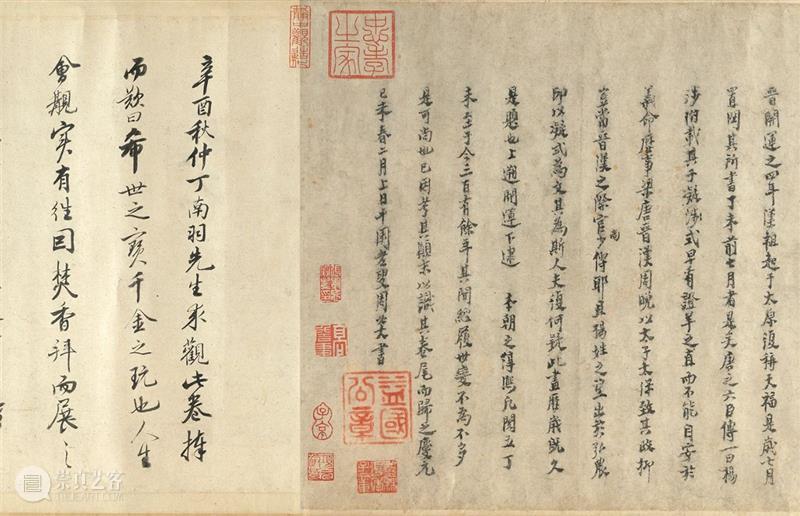 晉開運之四年漢祖起于太原復稱天福是歲七月
置閏其所書丁未前七月者是矣唐之六臣傳一曰楊
涉附載其子凝式早有證羊之直而不能自安於
義命歷事梁唐晉漢周晚以太子太保致其政抑
豈當晉漢之際官尚少傅耶且楊姓之望出於弘農
即以凝式為文其為斯人夫復何疑此畫歷歲既久
是題也上遡開運下逮 本朝之淳熙凡閏五丁
未至于今三百有餘年其間縂履世變不為不多
是可尚也已因考其顛末以識其卷尾而歸之慶元
己未春二月上日平園老叟周必大書
忠孝之家
益國公章
子京
辛酉秋仲丁南羽先生來觀此卷捧
而歎曰希世之寶千金之玩也人生
會觀實有往因焚香拜而展之
崇真艺客